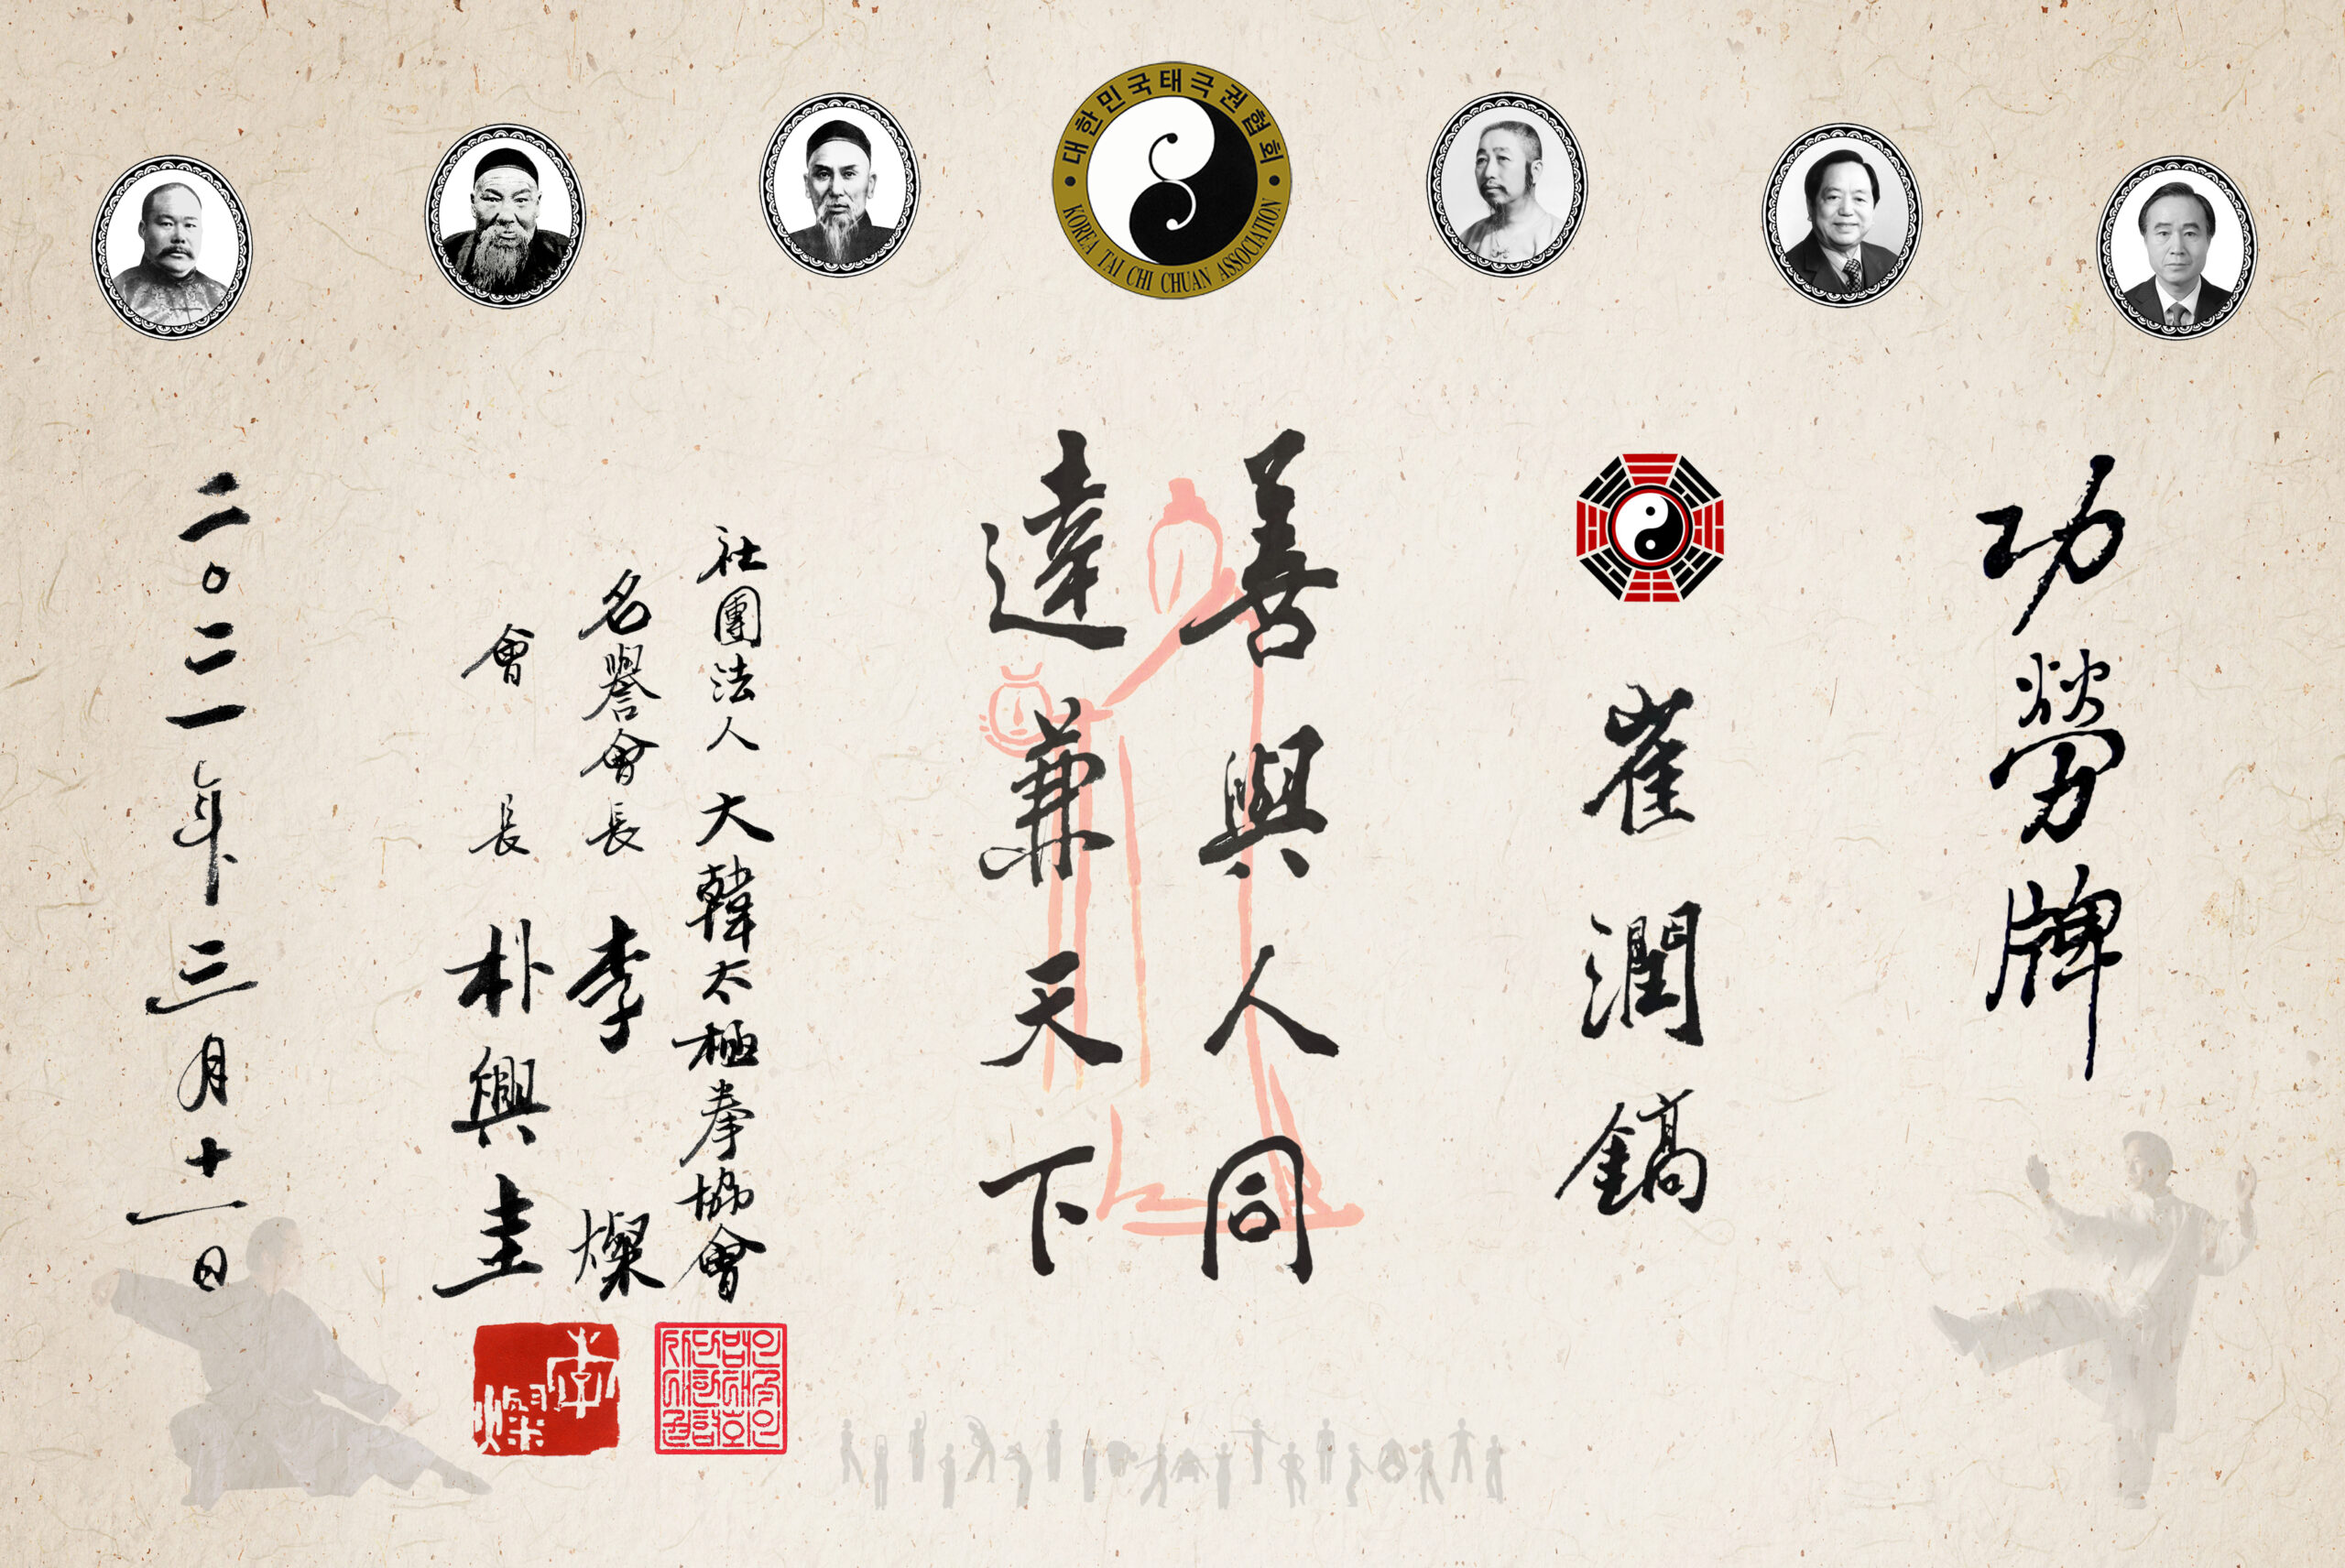 대한민국태극권협회
KOREA TAI CHI CHUAN ASSOCIATION
功勞牌
崔潤鎬
善與人同
達兼天下
社團法人 大韓太極拳協會
名譽會長 李燦
會長 朴興圭
二〇二一年三月十一日
李燦